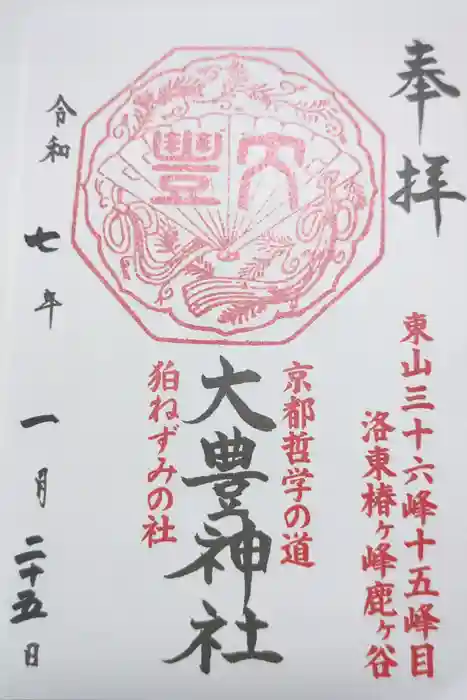 奉拝
東山三十六峰十五峰目
洛東椿ヶ峰鹿ヶ谷
京都哲学の道
大豊
大豊神社
狛ねずみの社
令和七年一月二十五日